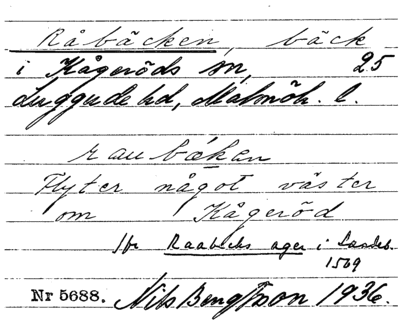 Råbäcken, bäck
i Kågeröds sn, 25
Luggude hd, Malmöh. l.
raubäken
Flyter något väster
om Kågeröd
Jfr Raabecks ager i Landeb.
1569
Nr 5688. Nils Bengtsson 1936.